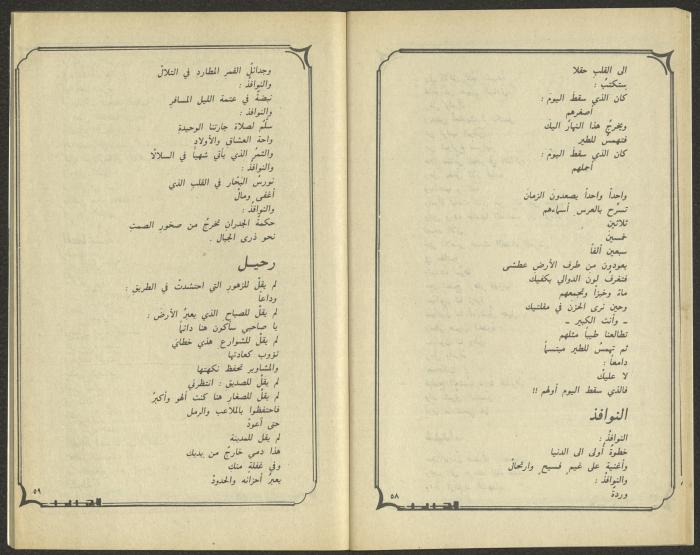 الى القلب حقلا
ستكتبُ :
كان الذي سقطَ اليومَ :
أصغرهم
ويخرجُ هذا النهارُ اليكَ
فتهمسُ للطير
كان الذي سقطَ اليومَ :
أجملهم
واحداً واحداً يصعدونَ الزمانَ
تسرّح بالعرس أسماءهم
ثلاثين
خمسين
سبعين ألفاً
يعودون من طرف الأرض عطشى
فتغرفُ لون الدوالي بكفيكَ
ماءً وخبزاً وتجمعهم
وحين نرى الحزن في مقلتيك
ـ وأنت الكبير ـ
تطالعنا طيباً مثلهم
ثم تهمسُ للطير مبتسماً
دامعاً :
لا عليكْ
فالذي سقط اليوم أولهم !!
النوافذ
النوافذُ :
خطوةٌ أولى الى الدنيا
وأغنية على غيمٍ فسيحٍ وارتحالْ
والنوافذُ :
وردةٌ
٥٨
وجدائلُ القمر المطاردِ في التلالْ
والنوافذُ :
نبضةٌ في عتمة الليل المسافرِ
والنوافذ :
سلّمٌ لصلاة جارتنا الوحيدةِ
واحة العشاق والأولادِ
والتمرُ الذي يأتي شهياً في السلالْ
والنوافذُ :
نورسُ البحّار في القلب الذي
أغفى ومالْ
والنوافذُ :
حكمةُ الجدران تخرجُ من صخور الصمتِ
نحو ذرى الجبال .
رحيـل
لم يقلْ للزهور التي احتشدتْ في الطريق :
وداعاً
لم يقلْ للصباح الذي يعبرُ الأرضَ :
يا صاحبي سأكون هنا دائماً
لم يقلْ للشوارع هذي خطايَ
تؤوب كعادتها
والمشاوير تحفظ نكهتها
لم يقلْ للصديق : انتظرني
لم يقلْ للصغار هنا كنت ألهو وأكبرُ
فاحتفظوا بالملاعب والرمل
حتى أعودْ
لم يقل للمدينة
هذا دمي خارجٌ من يديك
وفي غفلةٍ منك
يعبرُ أحزانَه والحدودْ
٥٩